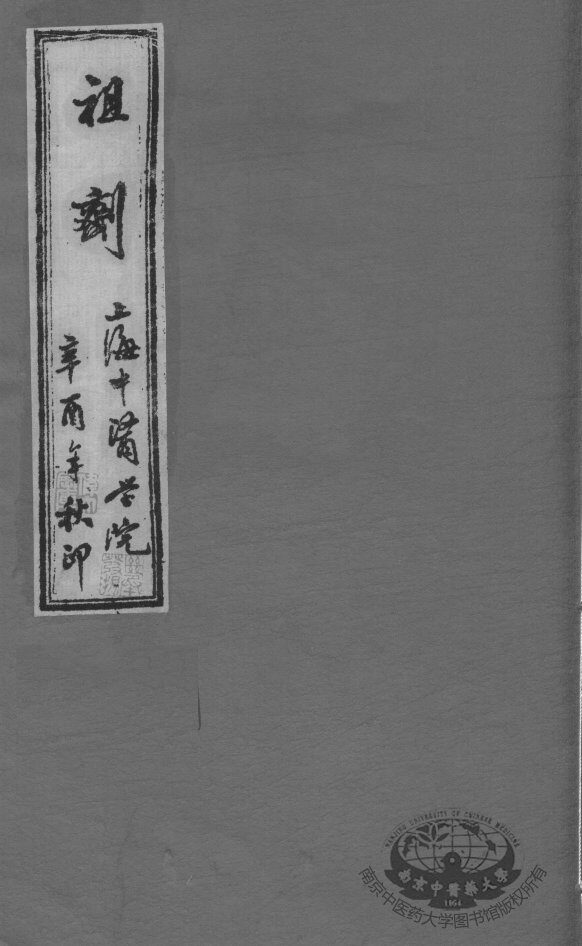 祖劑
上海中醫学院
辛酉年秋印
NANJING UNIVERSITY OF CHINESE MEDICINE
南京中醫藥大學
1954
南京中医药大学图书馆版权所有